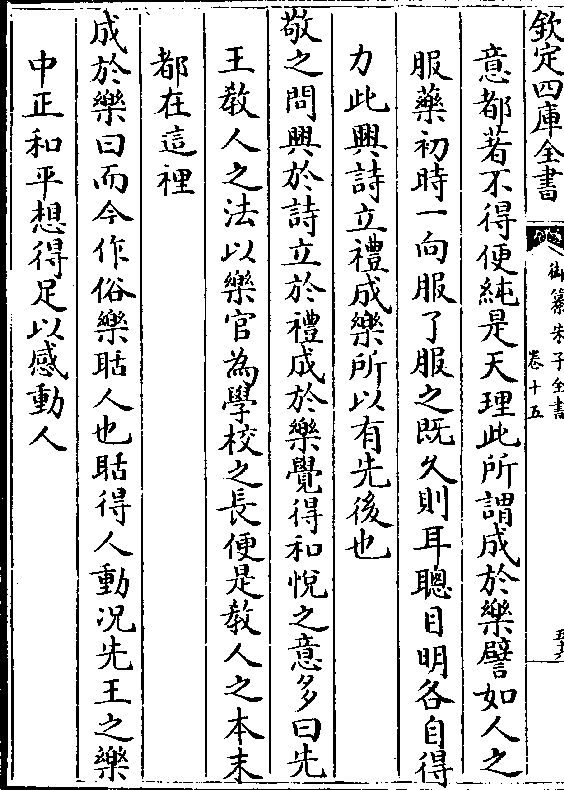 欽定四庫全書
御纂朱子全書
卷十五
意都著不得便純是天理此所謂成於樂譬如人之
服藥初時一向服了服之既久則耳聰目明各自得
力此興詩立禮成樂所以有先後也
敬之問興於詩立於禮成於樂覺得和悅之意多曰先
王教人之法以樂官為學校之長便是教人之本末
都在這裡
成於樂曰而今作俗樂聒人也聒得人動况先王之樂
中正和平想得足以感動人